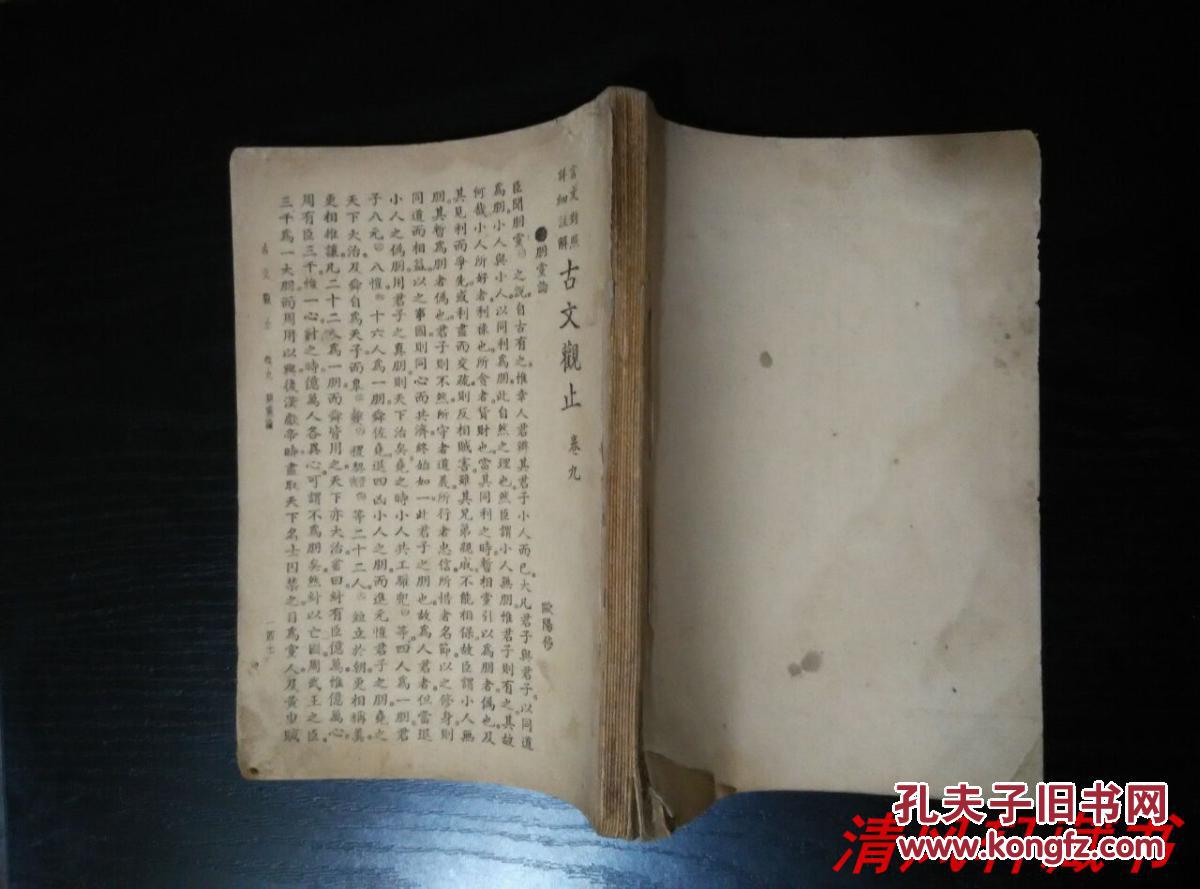 言文對照
詳細註解
古文觀止 卷九
朋黨論
歐陽修
臣聞朋黨之說。自古有之。惟幸人君辨其君子小人而已。大凡君子與君子。以同道
為朋。小人與小人。以同利為朋。此自然之理也。然臣謂小人無朋。惟君子則有之。其故
何哉。小人所好者利祿也。所貪者貨財也。當其同利之時。暫相黨引以為朋者。偽也。及
其見利而爭先。或利盡而交疏。則反相賊害。雖其兄弟親戚。不能相保。故臣謂小人無
朋。其暫為朋者。偽也。君子則不然。所守者道義。所行者忠信。所惜者名節。以之修身。則
同道而相益。以之事國。則同心而共濟。終始如一。此君子之朋也。故為人君者。但當退
小人之偽朋。用君子之真朋。則天下治矣。堯之時。小人共工驩兜等四人為一朋。君
子八元八愷十六人為一朋。舜佐堯。退四凶小人之朋。而進元愷君子之朋。堯之
天下大治。及舜自為天子。而皋夔稷契等二十二人。並立於朝。更相稱美。
更相推讓。凡二十二人為一朋。而舜皆用之。天下亦大治。書曰。紂有臣億萬。惟億萬心。
周有臣三千。惟一心。紂之時。億萬人各異心。可謂不為朋矣。然紂以亡國。周武王之臣
三千為一大朋。而周用以興。後漢獻帝時。盡取天下名士囚禁之。目為黨人。及黃巾賊
古文觀止 卷九 朋黨論
孔夫子旧书网
www.kongfz.com
清风轩藏书